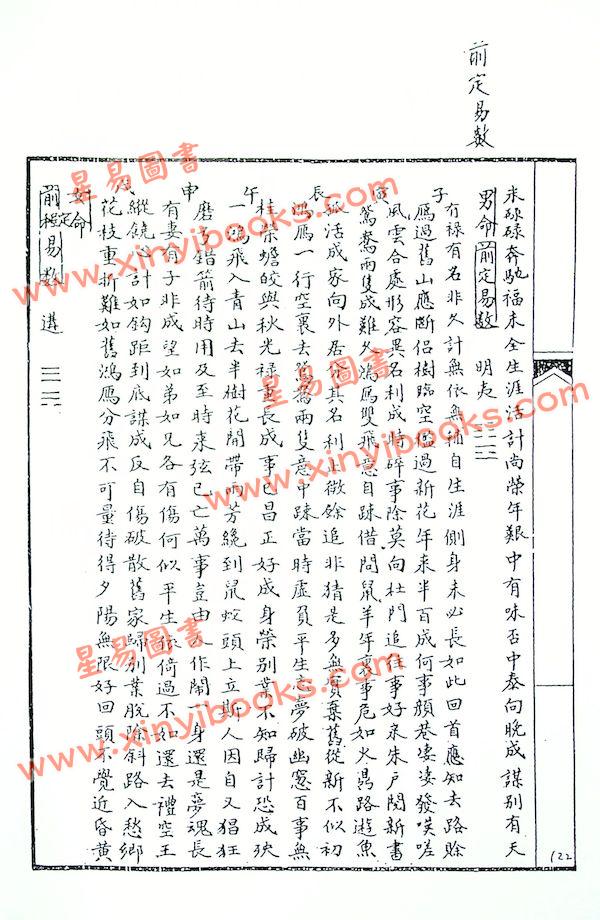 前定易數
米碌碌奔馳福未全生涯活計尚榮年艱中有味否中泰向晚成謀別有天
男命 前定易數 明夷
子
有祿有名非久計無依無補自生涯側身未必長如此回首應知去路賒
雁過舊山應斷侶樹臨空檻過新花年來半百成何事顏巷凄凄發嘆嗟
寅
風雲合處形容異名利成時碎事除莫向杜門追往事好來朱戶閱新書
鴛鴦兩隻成難久鴻雁雙飛意自疎借問鼠羊年裏事危如火鼎路遊魚
辰
孤活成家向外居 其名利上微餘追非猜是多無實棄舊從新不似初
鴻雁一行空裏去鴛鴦兩隻意中疎當時虛負平生志夢破幽窓百事無
午
桂榮蟾皎與秋光祿 長成事已昌正好成身榮別業不知歸計恐成殃
一鴻飛入青山去半樹花開帶雨芳纔到鼠蛇頭上立斯人因自又猖狂
申
磨弓錯箭待時用及至時來弦已亡萬事豈由人作鬧一身還是夢魂長
有妻有子非成望如弟如兄各有傷何似平生依倚過不如還去禮空王
戌
縱饒心計如鈎距到底謀成反自傷破散舊家歸別業脫除斜路入愁鄉
花枝重折難如舊鴻雁分飛不可量待得夕陽無限好回頭不覺近昏黃
女命
前定易數 遘
122
星易圖書
www.xinyibooks.com
星易圖書
www.xinyibooks.com
星易圖書
www.xinyibooks.com